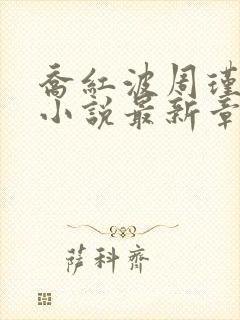 喬紅波周瑾
小說最新章
薩科齊